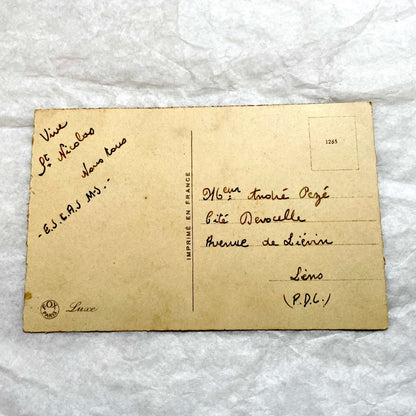 Vive
St Nicolas
Nous tous
- E.S.G.A.S M.S. -
FOX
PARIS
Luxe
IMPRIMÉ EN FRANCE
1265
Mr André Pezé
Cité Devocelle
Avenue de Liévin
Lens
(P.D.C.)